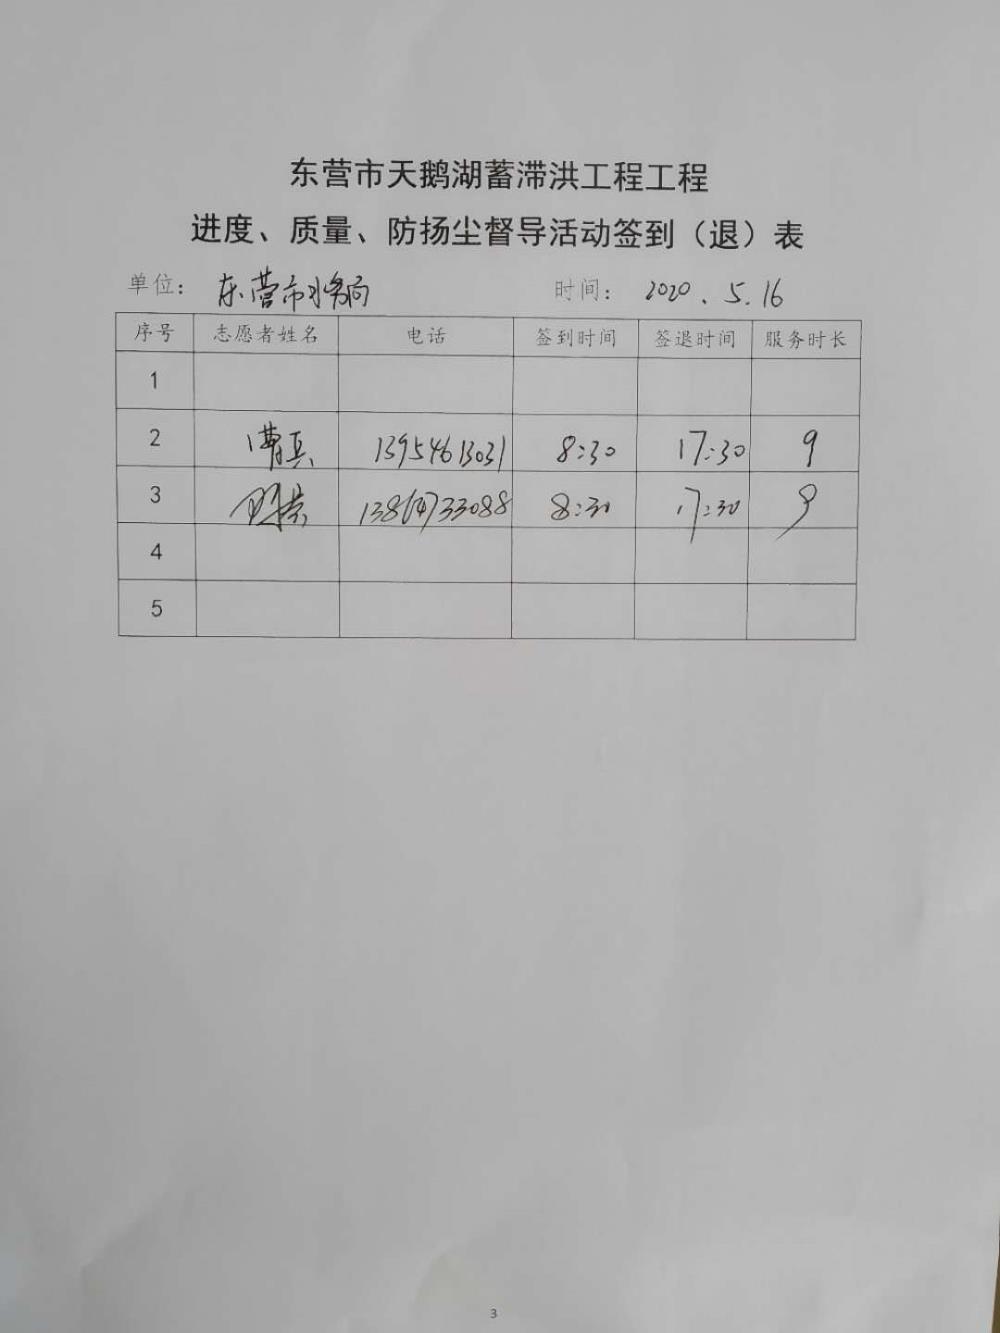 东营市天鹅湖蓄滞洪工程工程
进度、质量、防扬尘督导活动签到（退）表
单位： 东营市水务局 时间： 2020.5.16
序号 志愿者姓名 电话 签到时间 签退时间 服务时长
1
2 曹兵 13954613031 8:30 17:30 9
3 8:30 17:30 9
4
5
3